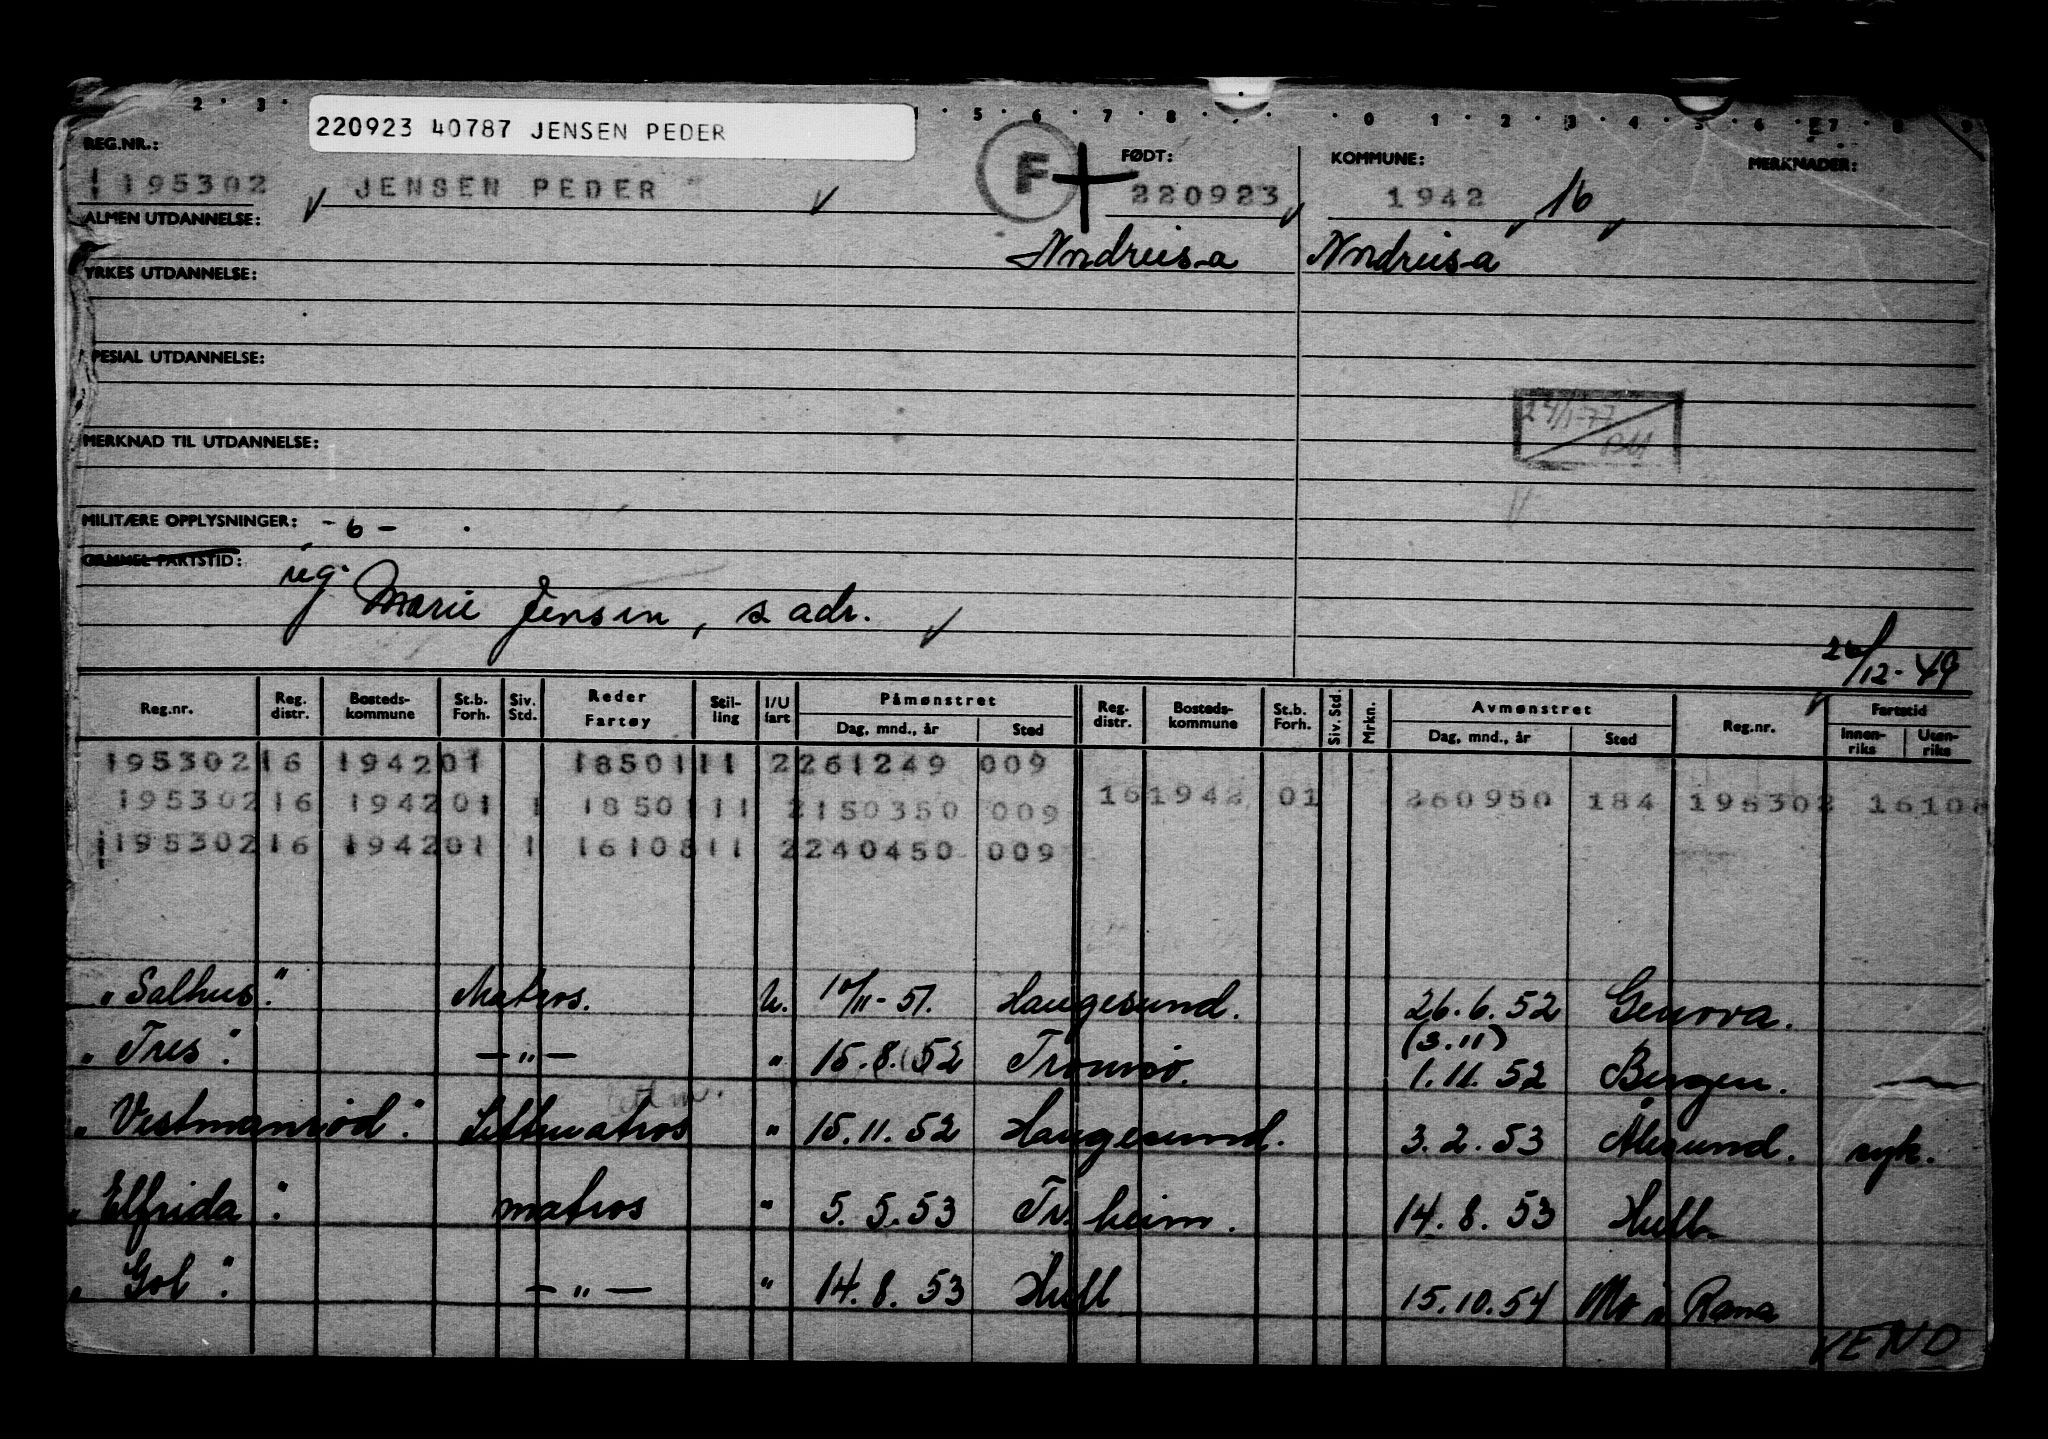 2 · 3 · 4 · 5 · 6 · 7 · 8 · · · 0 · 1 · 2 · 3 · 4 · 5 · 6 · 7 · 8 · 9
220923 40787 JENSEN PEDER
REG.NR.: FØDT: KOMMUNE: MERKNADER:
195302 JENSEN PEDER F 220923 1942 16
ALMEN UTDANNELSE: Nordreisa Nordreisa
YRKES UTDANNELSE:
SPESIAL UTDANNELSE:
24/1-77
MERKNAD TIL UTDANNELSE:
MILITÆRE OPPLYSNINGER: - 6 -
GAMMEL FARTSTID:
Marie Jensen, s adr.
/12-49
Reg.nr. Reg. distr. Bosteds-kommune St.b. Forh. Siv. Std. Reder Fartøy Stil-ling I/U fart Påmønstret Dag, mnd., år Sted Reg. distr. Bosteds-kommune St.b. Forh. Siv. Std. Mrkn. Avmønstret Dag, mnd., år Sted Reg.nr. Fartstid Innen-riks Uten-riks
195302 16 1942 01 1850111 2 261249 009
195302 16 1942 01 1 1850111 2 150350 009 16 1942 01 260950 184 195302 16108
195302 16 1942 01 1 1610811 2 240450 009
"Salhus." Matros. U. /11-51. Haugesund. 26.6.52 Genova.
(3.11)
"Tres". — " — " 15.8.52 Tromsö. 1.11.52 Bergen.
"Vestmanrød". Lettmatros " 15.11.52 Haugesund. 3.2.53 Ålesund. syk.
"Elfrida". matros " 5.5.53 Tr.heim. 14.8.53 Hull.
"Gol". — " — " 14.8.53 Hull 15.10.54 Mo i Rana
VEND